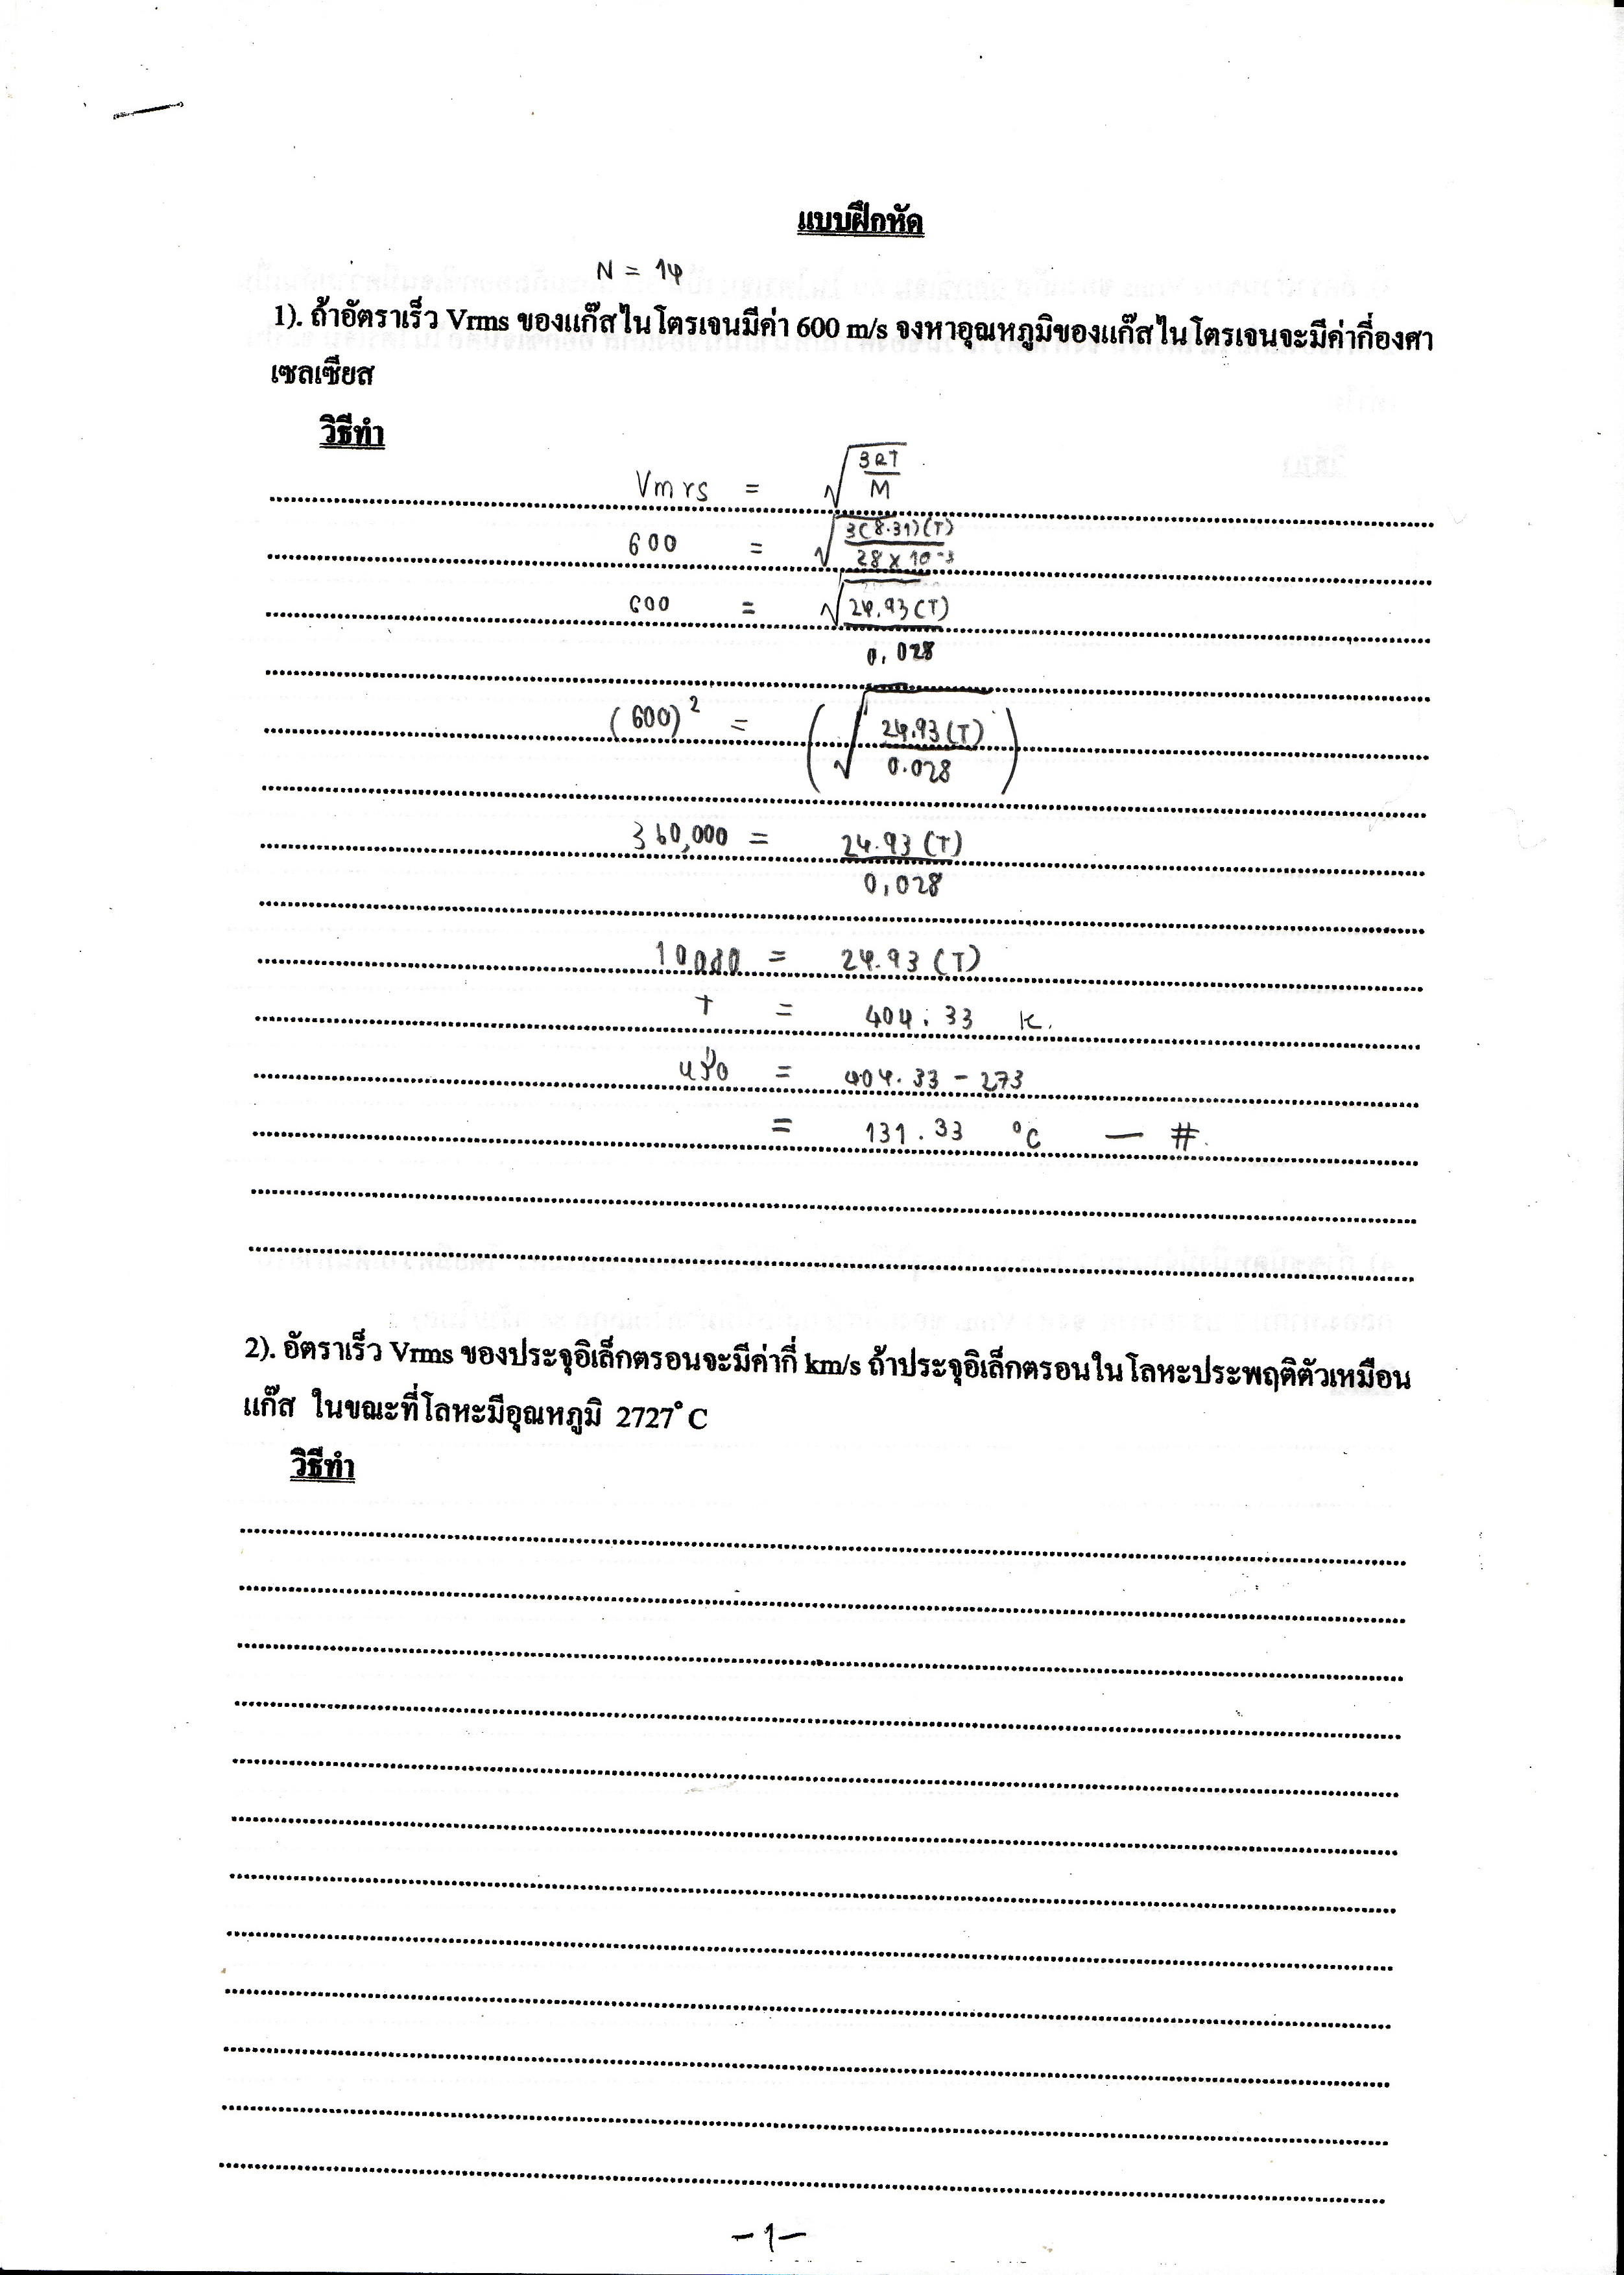 แบบฝึกหัด
N = 14
1). ถ้าอัตราเร็ว Vrms ของแก๊สไนโตรเจนมีค่า 600 m/s จงหาอุณหภูมิของแก๊สไนโตรเจนจะมีค่ากี่องศา
เซลเซียส
วิธีทำ
Vmrs = √(3RT/M)
600 = √(3(8.31)(T)/28 × 10⁻³)
600 = √(24.93(T)/0.028)
(600)² = (√(24.93(T)/0.028))
360,000 = 24.93(T)/0.028
10080 = 24.93(T)
T = 404.33 K.
= 404.33 - 273
= 131.33 °C — #.
2). อัตราเร็ว Vrms ของประจุอิเล็กตรอนจะมีค่ากี่ km/s ถ้าประจุอิเล็กตรอนในโลหะประพฤติตัวเหมือน
แก๊ส ในขณะที่โลหะมีอุณหภูมิ 2727° C
วิธีทำ
-1-